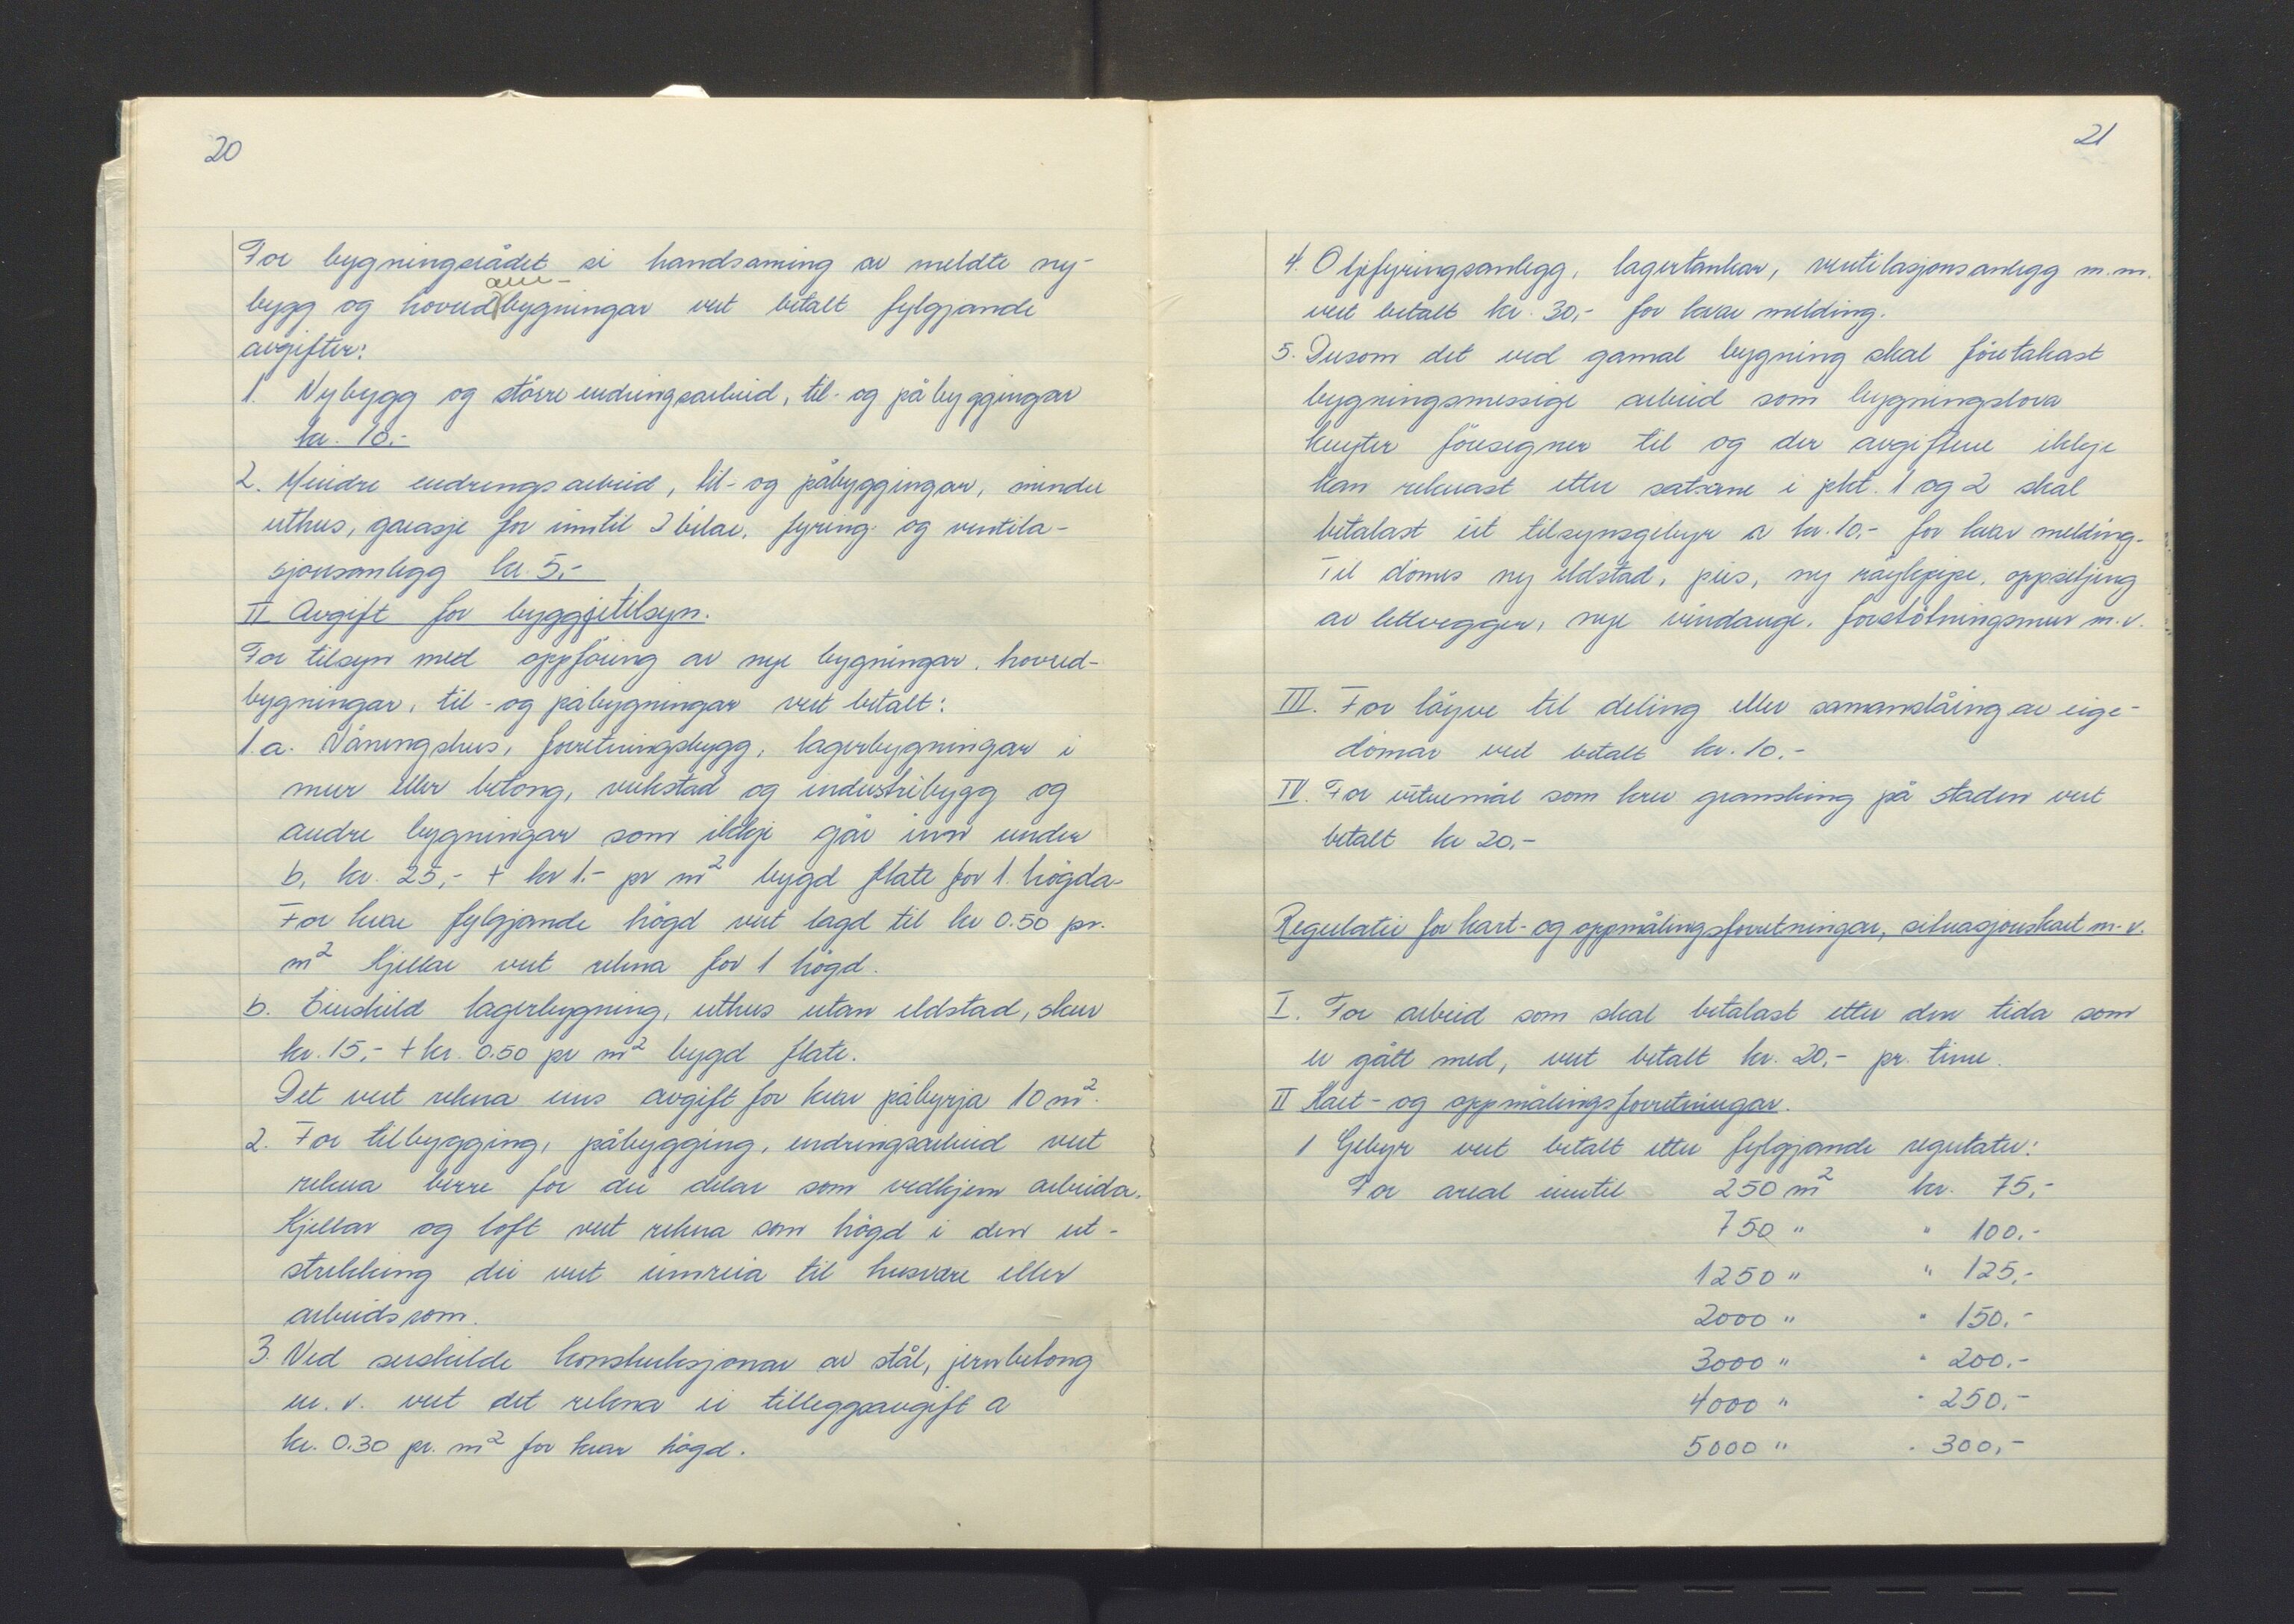 20
For bygningsrådet si handsaming av meldte ny-
bygg og hovudombygningar vert betalt fylgjande
avgifter:
1. Nybygg og större endringsarbeid, til- og påbyggingar
kr. 10.-
2. Mindre endringsarbeid, til- og påbyggingar, mindre
uthus, garasje for inntil 2 bilar, fyring- og ventila-
sjonsanlegg kr. 5,-
II Avgift for byggjetilsyn.
For tilsyn med oppföring av nye bygningar, hovud-
bygningar, til- og påbygningar vert betalt:
1.a. Våningshus, forretningsbygg, lagerbygningar i
mur eller betong, verkstad og industribygg og
andre bygningar som ikkje går inn under
b, kr. 25,- + kr 1.- pr m² bygd flate for 1. högda.
For kvar fylgjande högd vert lagd til kr 0.50 pr.
m² Kjellar vert rekna for 1 högd.
b. Einskild lagerbygning, uthus utan eldstad, skur
kr. 15,- + kr. 0.50 pr m² bygd flate.
Det vert rekna eins avgift for kvar påbyrja 10 m².
2. For tilbygging, påbygging, endringsarbeid vert
rekna berre for dei delar som vedkjem arbeida.
Kjellar og loft vert rekna som högd i den ut-
strekking dei vert innreia til husvære eller
arbeidsrom.
3. Ved serskilde konstruksjonar av stål, jernbetong
m. v. vert det rekna ei tilleggsavgift a
kr. 0.30 pr. m² for kvar högd.
21
4. Oljefyringsanlegg, lagertankar, ventilasjonsanlegg m.m.
vert betalt kr. 30,- for kvar melding.
5. Dersom det ved gamal bygning skal företakast
bygningsmessige arbeid som bygningslova
knyter föresegner til og der avgiftene ikkje
kan reknast etter satsane i pkt. 1 og 2 skal
betalast eit tilsynsgebyr a kr. 10.- for kvar melding.
Til dömes ny eldstad, peis, ny röykpipe, oppsetjing
av lettvegger, nye vindauge, forstötningsmur m.v.
III. For löyve til deling eller samanslåing av eige-
domar vert betalt kr. 10.-
IV. For vitnemål som krev gransking på staden vert
betalt kr 20,-
Regulativ for kart- og oppmålingsforretningar, situasjonskart m.v.
I. For arbeid som skal betalast etter den tida som
er gått med, vert betalt kr. 20,- pr. time.
II Kart- og oppmålingsforretningar.
1 Gebyr vert betalt etter fylgjande regulativ:
For areal inntil 250 m² kr. 75,-
750 " " 100.-
1250 " " 125,-
2000 " " 150.-
3000 " " 200.-
4000 " " 250.-
5000 " " 300,-